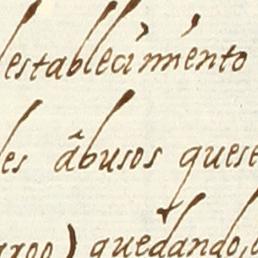 establecimiento
les abusos quese
rgoo) quedando,